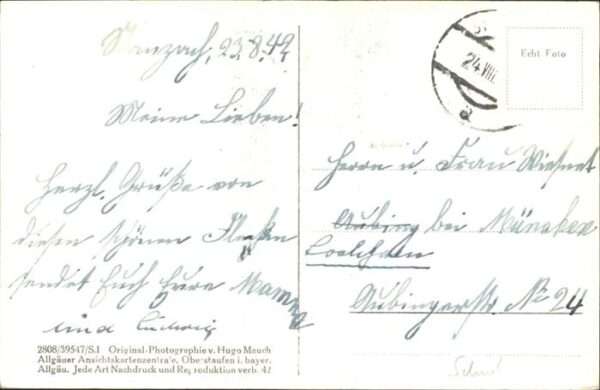 Stanzach, 23.8.42
Meine Lieben!
Herzl. Grüße von
diesem schönen Flecken
sendet Euch Eure Mamma
und Ludwig
2808/39547/S.I Original-Photographie v. Hugo Mauch
Allgäuer Ansichtskartenzentrale, Oberstaufen i. bayer.
Allgäu. Jede Art Nachdruck und Reproduktion verb. 42
24.VIII
Echt Foto
Herrn u. Frau
Aubing bei München
Lochham
Aubingerstr. № 24